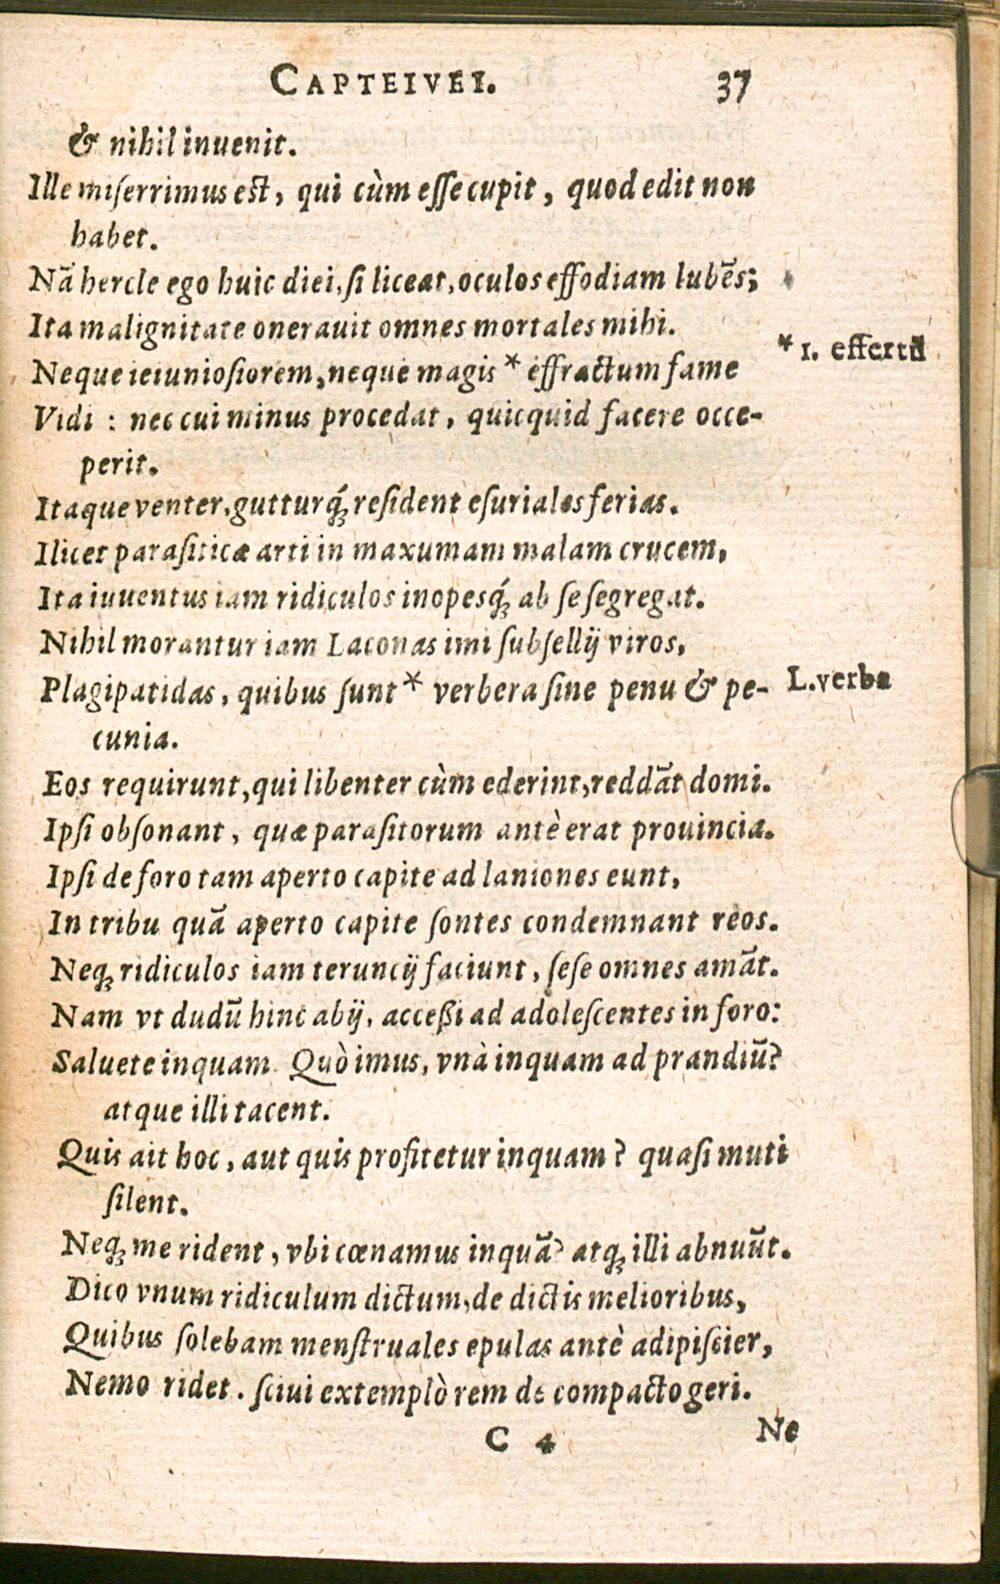 CAPTEIVEI. 37
& nihil inuenit.
Ille miſerrimus eſt, qui cùm eſſe cupit, quod edit non
habet.
Nã hercle ego huic diei, ſi liceat, oculos effodiam lubẽs;
Ita malignitate onerauit omnes mortales mihi.
* 1. effertũ
Neque ieiunioſiorem, neque magis * effractum fame
Vidi : nec cui minus procedat, quicquid facere occe-
perit.
Itaque venter, gutturq́; reſident eſuriales ferias.
Ilicet paraſiticæ arti in maxumam malam crucem,
Ita iuuentus iam ridiculos inopesq́; ab ſe ſegregat.
Nihil morantur iam Laconas imi ſubſellij viros,
Plagipatidas, quibus ſunt * verbera ſine penu & pe-
L. verba
cunia.
Eos requirunt, qui libenter cùm ederint, reddãt domi.
Ipſi obſonant, quæ paraſitorum antè erat prouincia.
Ipſi de foro tam aperto capite ad laniones eunt,
In tribu quã aperto capite ſontes condemnant reos.
Neq; ridiculos iam teruncij faciunt, ſeſe omnes amãt.
Nam vt dudũ hinc abij, acceßi ad adoleſcentes in foro:
Saluete inquam. Quò imus, vnà inquam ad prandiũ?
atque illi tacent.
Quis ait hoc, aut quis profitetur inquam? quaſi muti
ſilent.
Neq; me rident, vbi cœnamus inquã? atq; illi abnuũt.
Dico vnum ridiculum dictum, de dictis melioribus,
Quibus ſolebam menſtruales epulas antè adipiſcier,
Nemo ridet. ſciui extemplò rem de compacto geri.
C 4 Ne